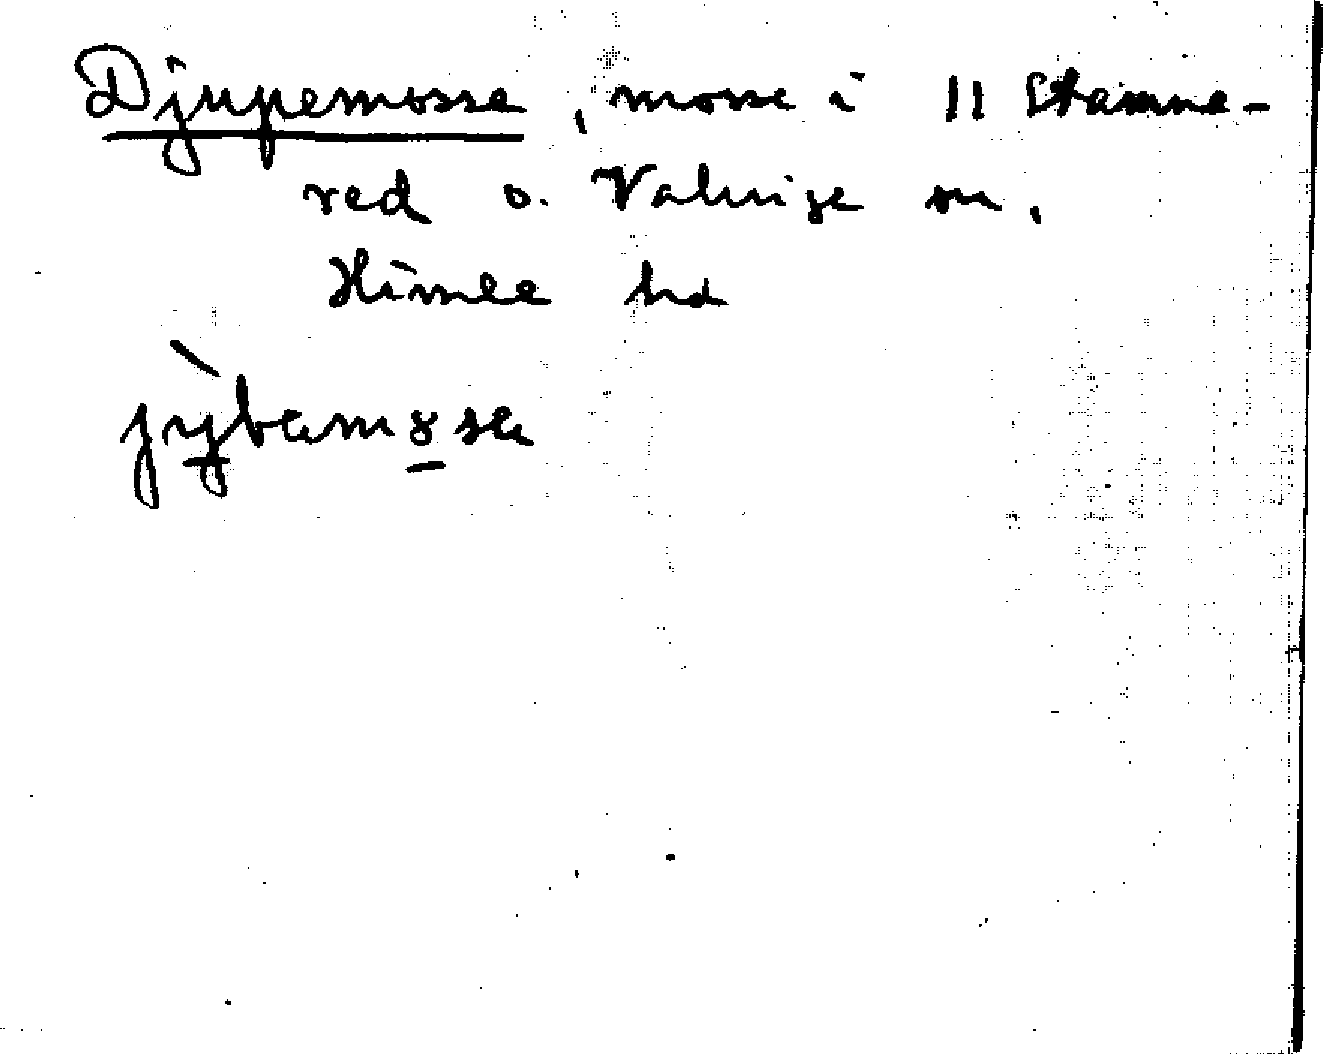 Djupemosse, mosse i 11 Stamne-
red o. Valinge sn,
Himle hd